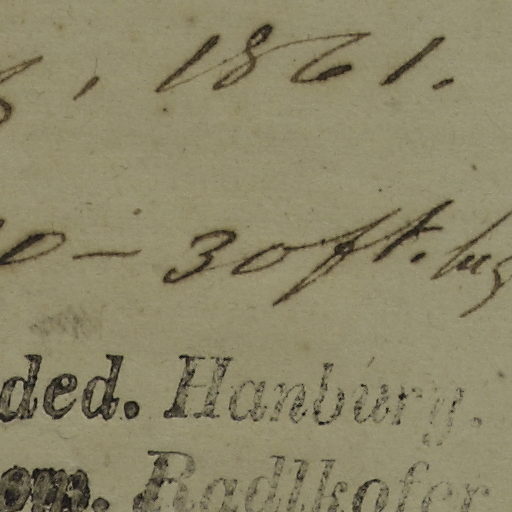 , 1861.
0 – 30 ft. hig
ded. Hanbury.
om. Radlkofer